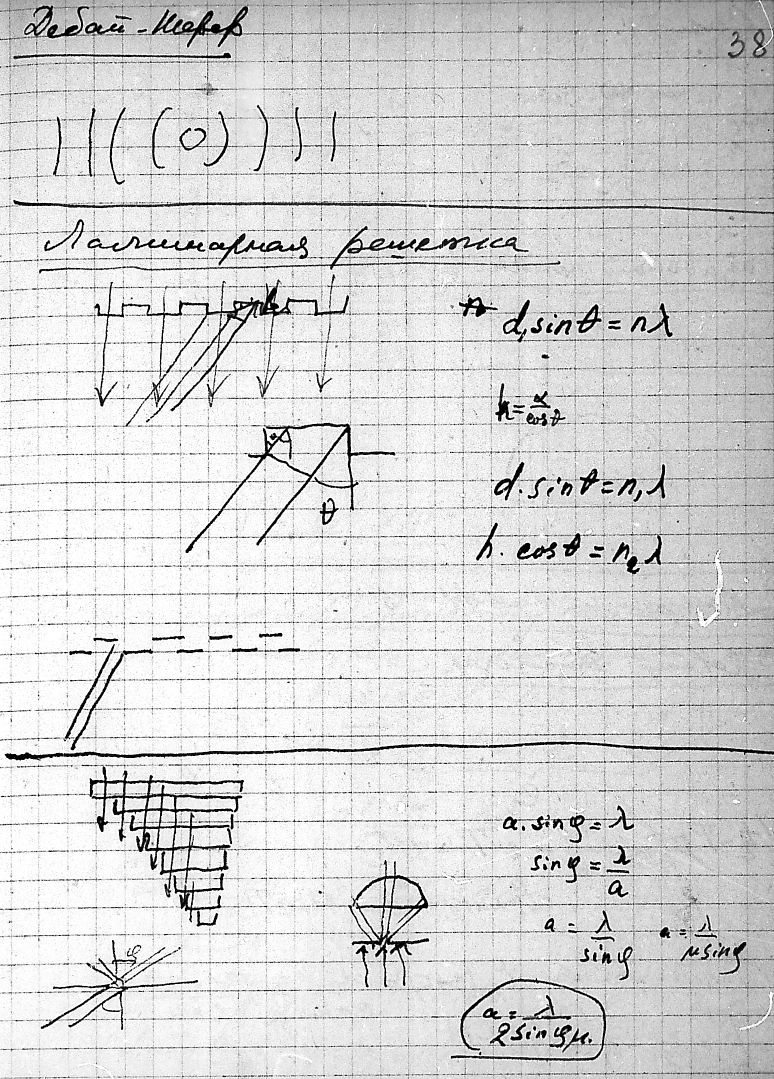 Дебай-Шерер
38
Ламинарная решетка
d₁sinθ = nλ
h = α/cosθ
d·sinθ = n₁λ
h·cosθ = n₂λ
θ
a·sinφ = λ
sinφ = λ/a
a = λ/sinφ a = λ/μsinφ
φ
a = λ/2sinφμ.